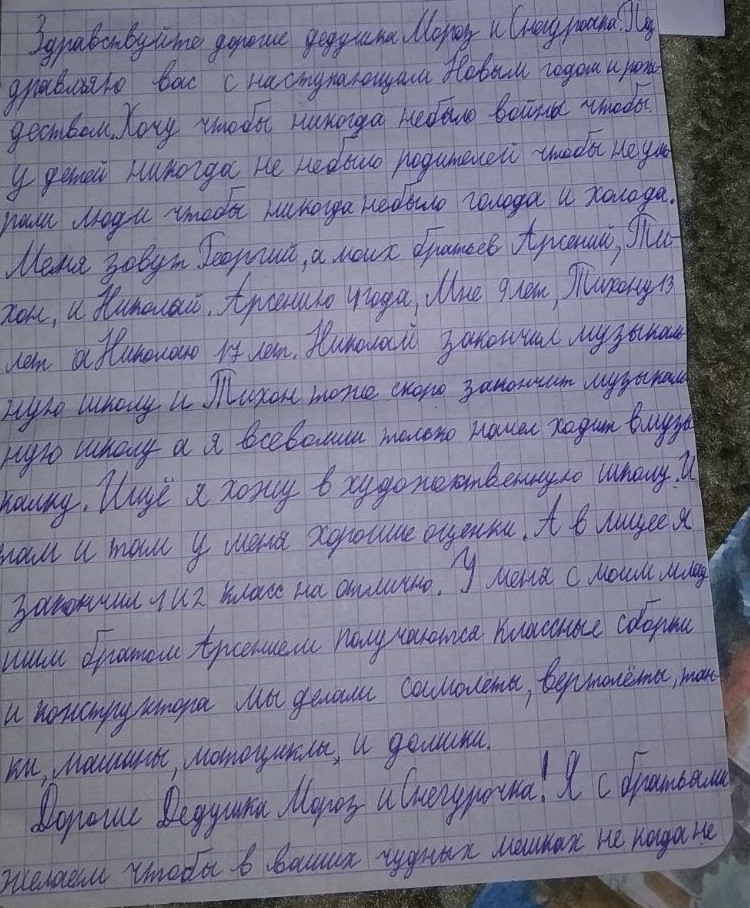 Здравствуйте дорогие дедушка Мороз и Снегурочка. Поз
дравляю вас с наступающим Новым годом и рож
деством. Хочу чтобы никогда небыло войны чтобы
у детей никогда не небыло родителей чтобы не уми
рали люди чтобы никогда небыло голода и холода.
Меня зовут Георгий, а моих братьев Арсений, Ти-
хон, и Николай. Арсению 4 года, Мне 9 лет, Тихону 13
лет а Николаю 17 лет. Николай закончил музыкаль
ную школу и Тихон тоже скоро закончит музыкаль
ную школу а я всеволиш только начел ходит в музы
калку. Ищё я хожу в художоктвенную школу. И
там и там у меня хорошие оценки. А в лицее я
закончил 1 и 2 класс на отлично. У меня с моим млад
шим братом Арсением получаются классные сборки
и конструктора мы делали самолёты, вертолёты, тан-
ки, машины, мотоциклы, и домики.
Дорогие Дедушка Мороз и Снегурочка! Я с братьями
желаем чтобы в ваших чудных мешках не когда не